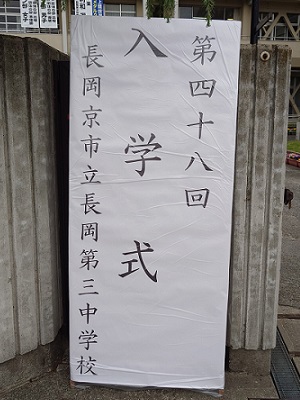 第四十八回
入学式
長岡京市立長岡第三中学校